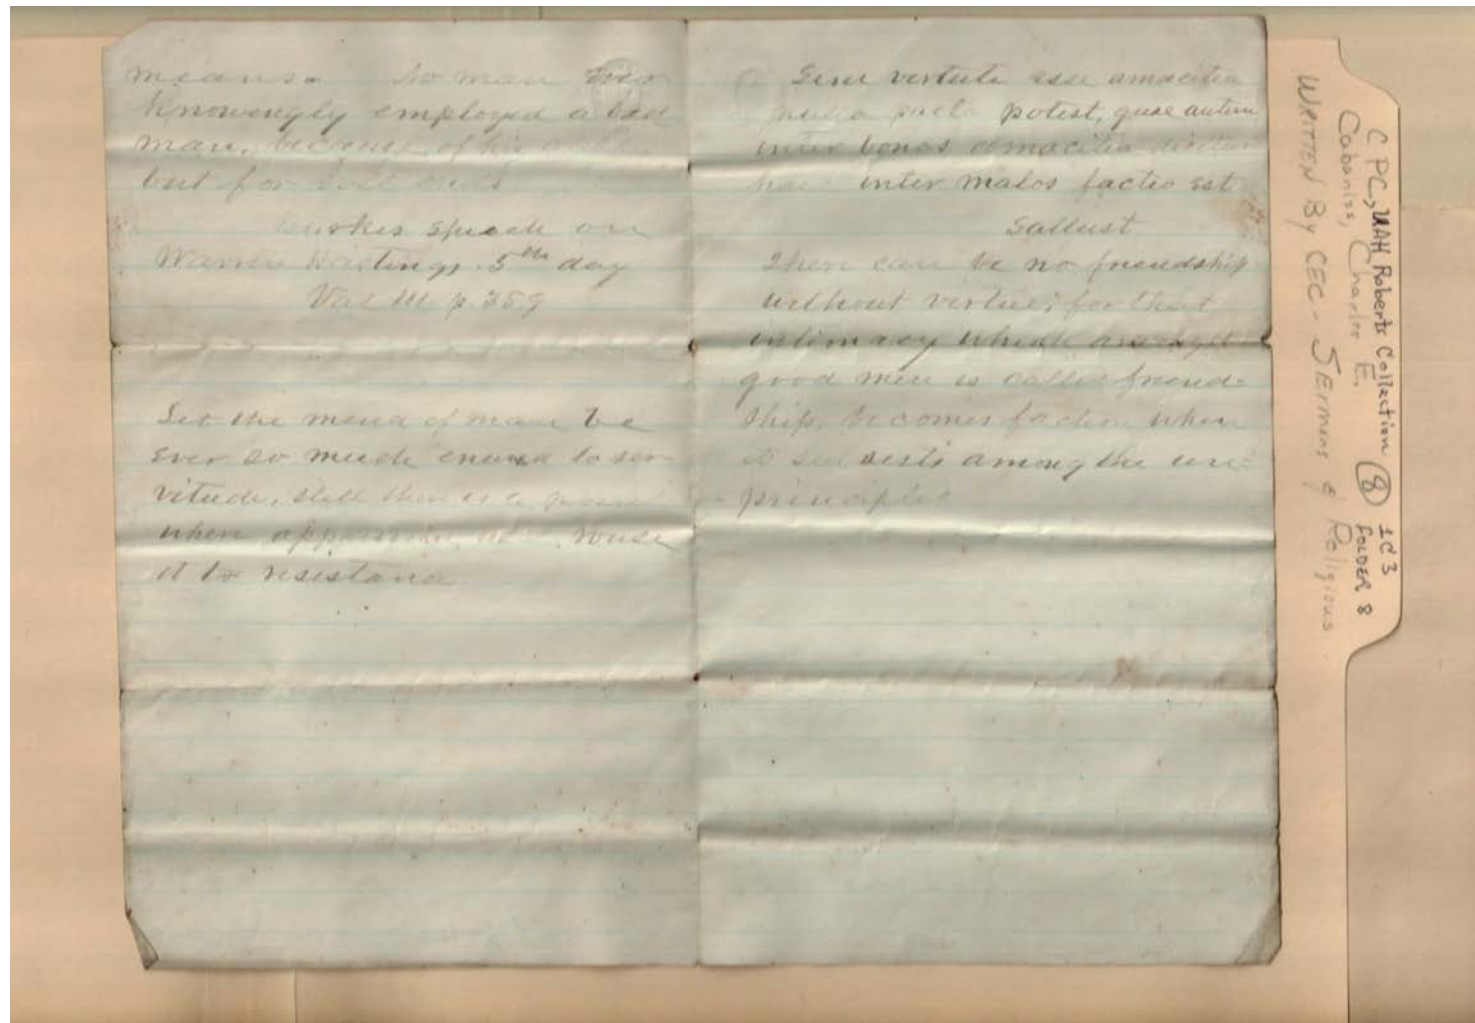 means. No man ever
knowingly employed a bad
man, because of his
but for
Burkes speech on
Warren Hastings. 5th day
Vol III p. 359
Let the mind of man be
ever so much enured to ser-
vitude, still there is a
where oppression rouse
it to resistance
Sine virtute esse amacitia
potest, quae autem
inter bonos amacitia dicitur
inter malos factio est
Sallust
There can be no friendship
without virtue; for that
intimacy which amongst
good men is called friend-
ship, becomes faction when
it subsists among the un-
principled
CPC, UAH Roberts Collection (8) 1C3
Cabaniss, Charles E. FOLDER 8
WRITTEN By CEC - SErmins & Religious